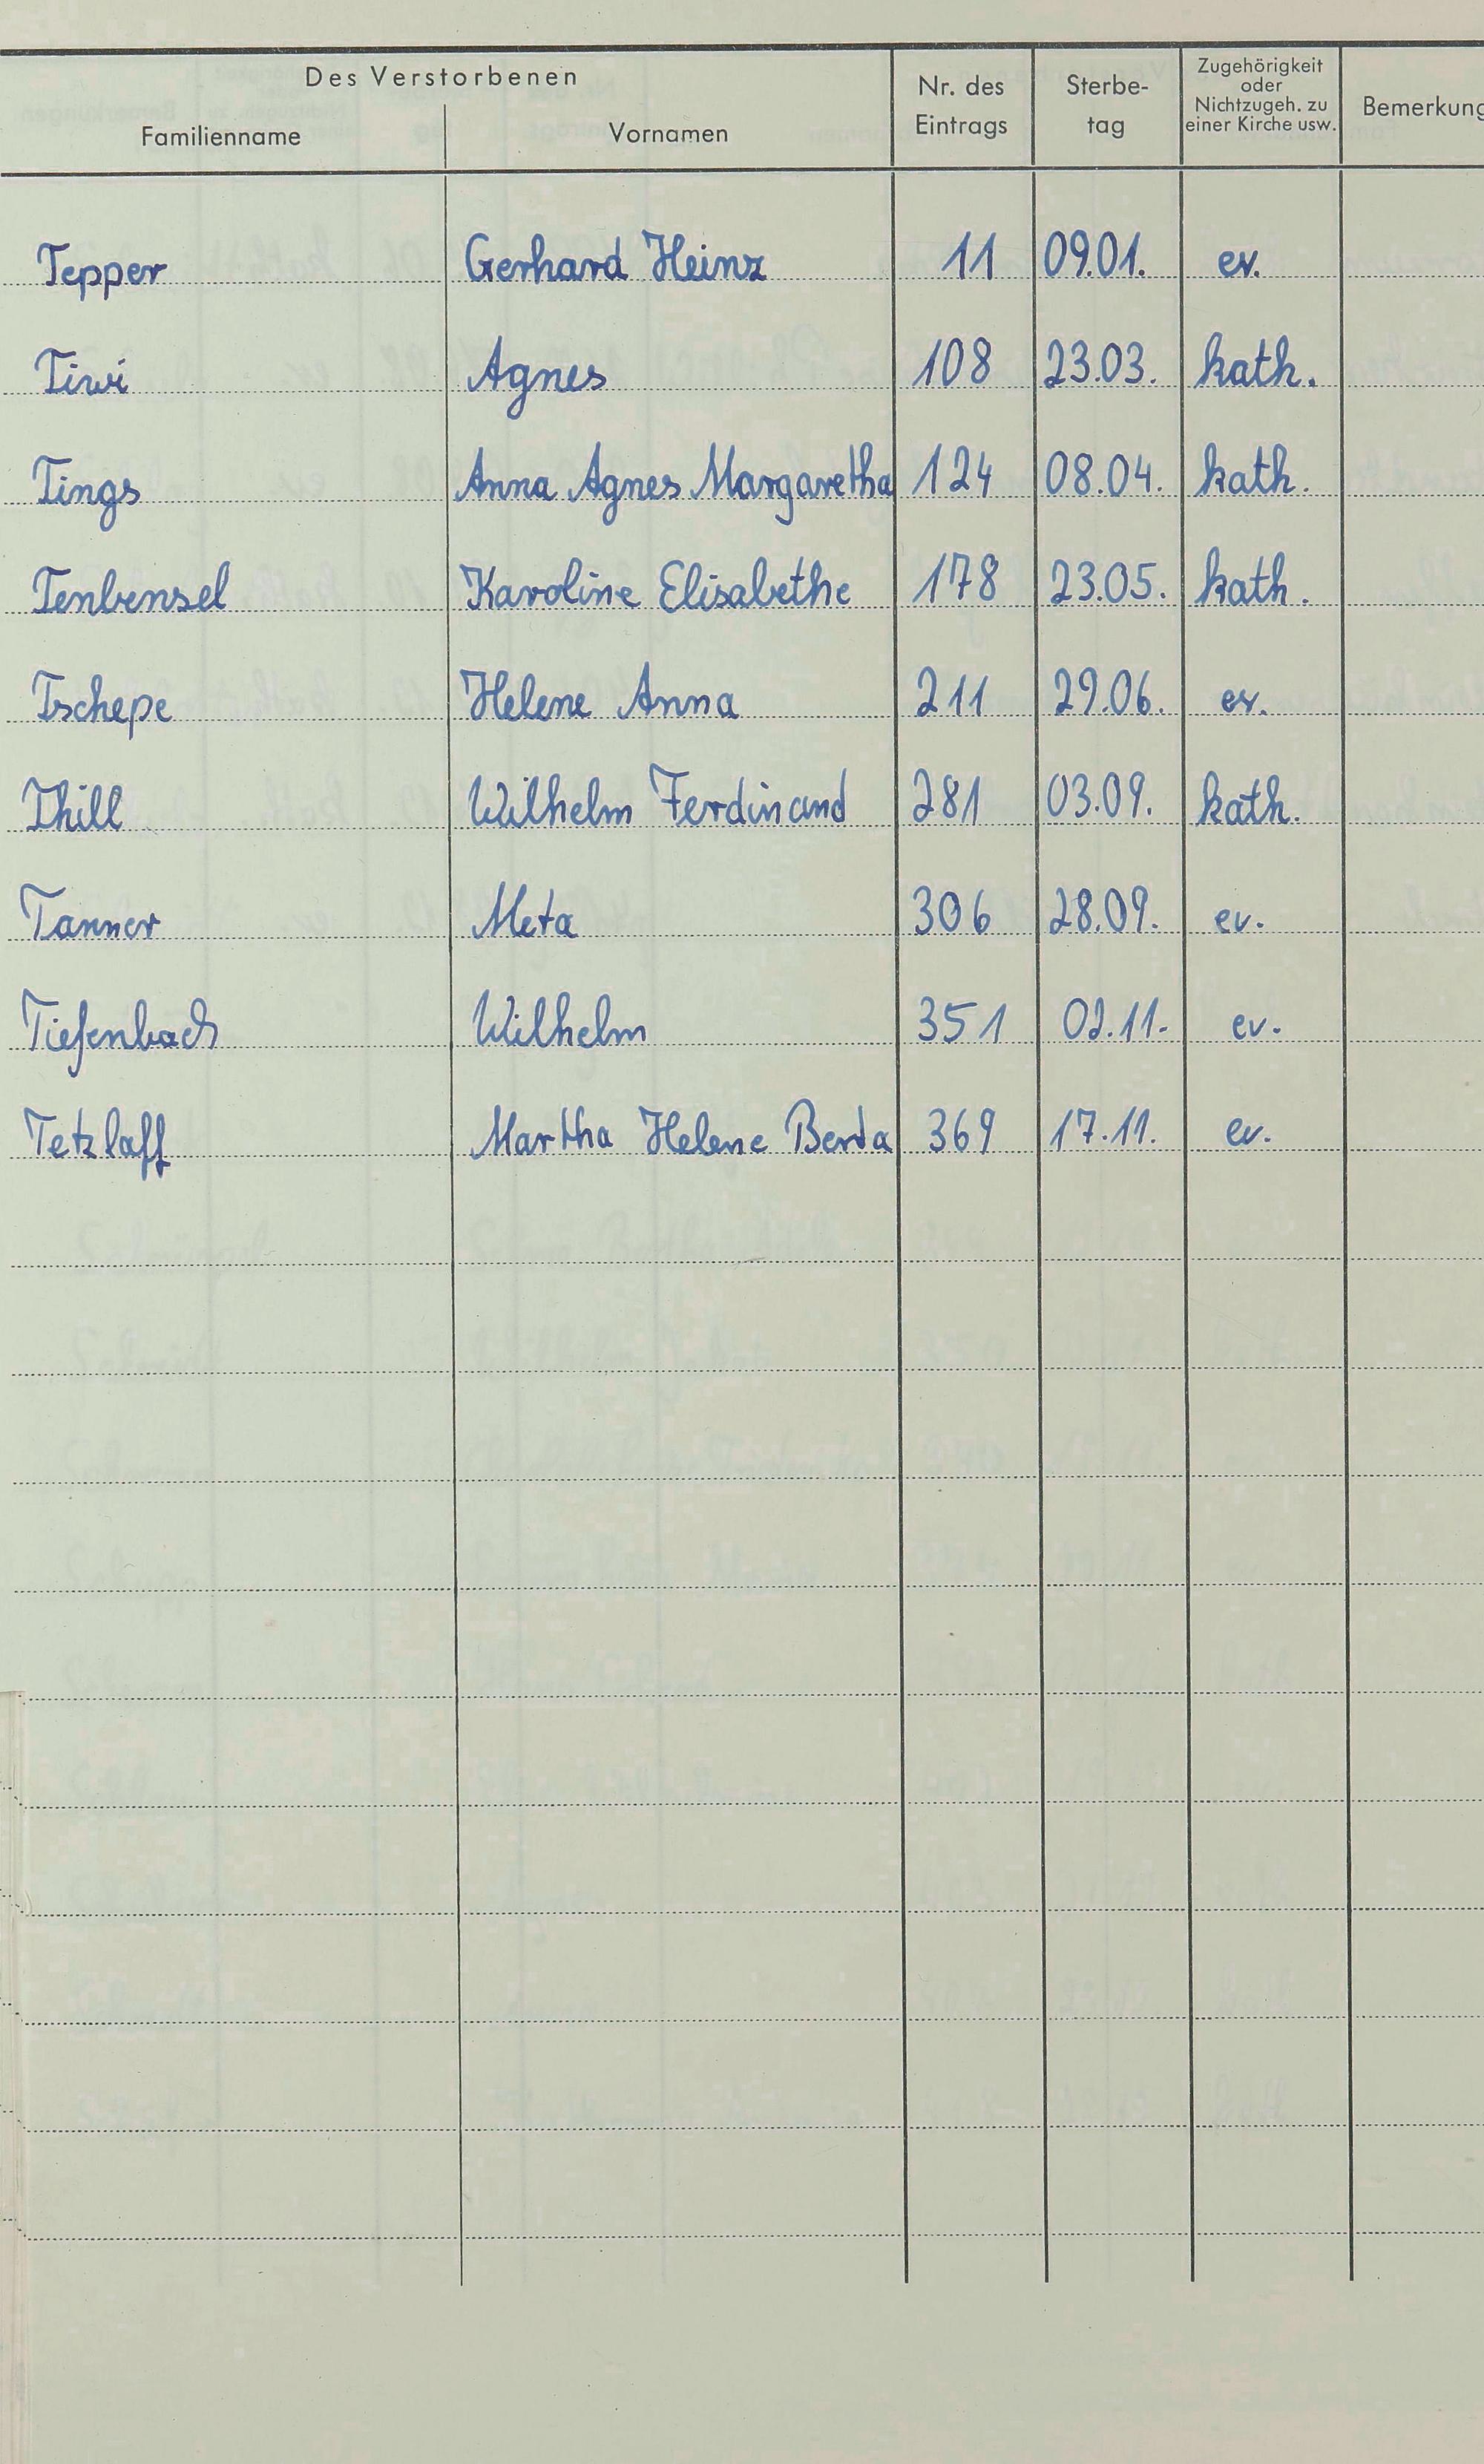 Des Verstorbenen
Familienname Vornamen Nr. des Eintrags Sterbe- tag Zugehörigkeit oder Nichtzugeh. zu einer Kirche usw. Bemerkung
Tepper Gerhard Heinz 11 09.01. ev.
Tiwi Agnes 108 23.03. kath.
Tings Anna Agnes Margaretha 124 08.04. kath.
Tenbensel Karoline Elisabethe 178 23.05. kath.
Tschepe Helene Anna 211 29.06. ev.
Thill Wilhelm Ferdinand 281 03.09. kath.
Tanner Meta 306 28.09. ev.
Tiefenbach Wilhelm 351 02.11. ev.
Tetzlaff Martha Helene Berta 369 17.11. ev.